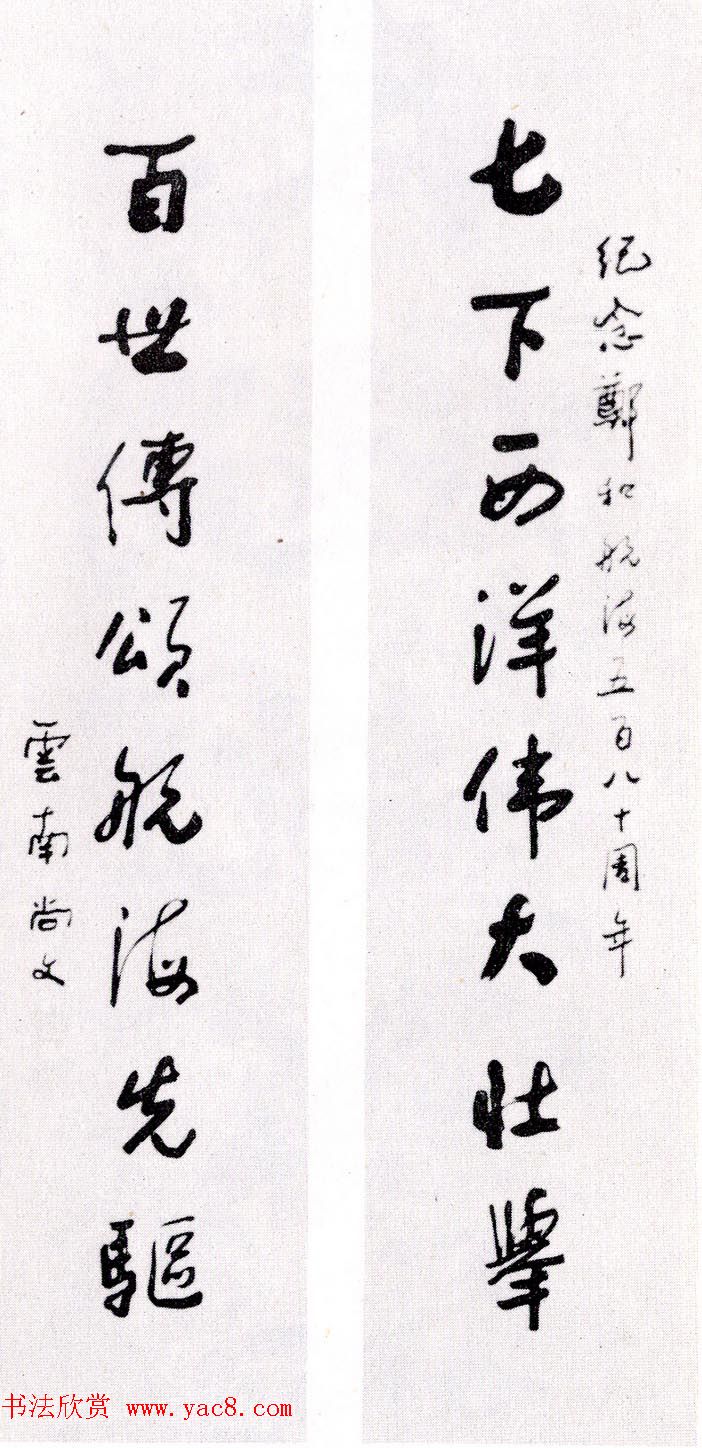 纪念鄭和航海五百八十周年
七下西洋伟大壮舉
百世傳頌航海先驅
雲南尚文
书法欣赏 www.yac8.com